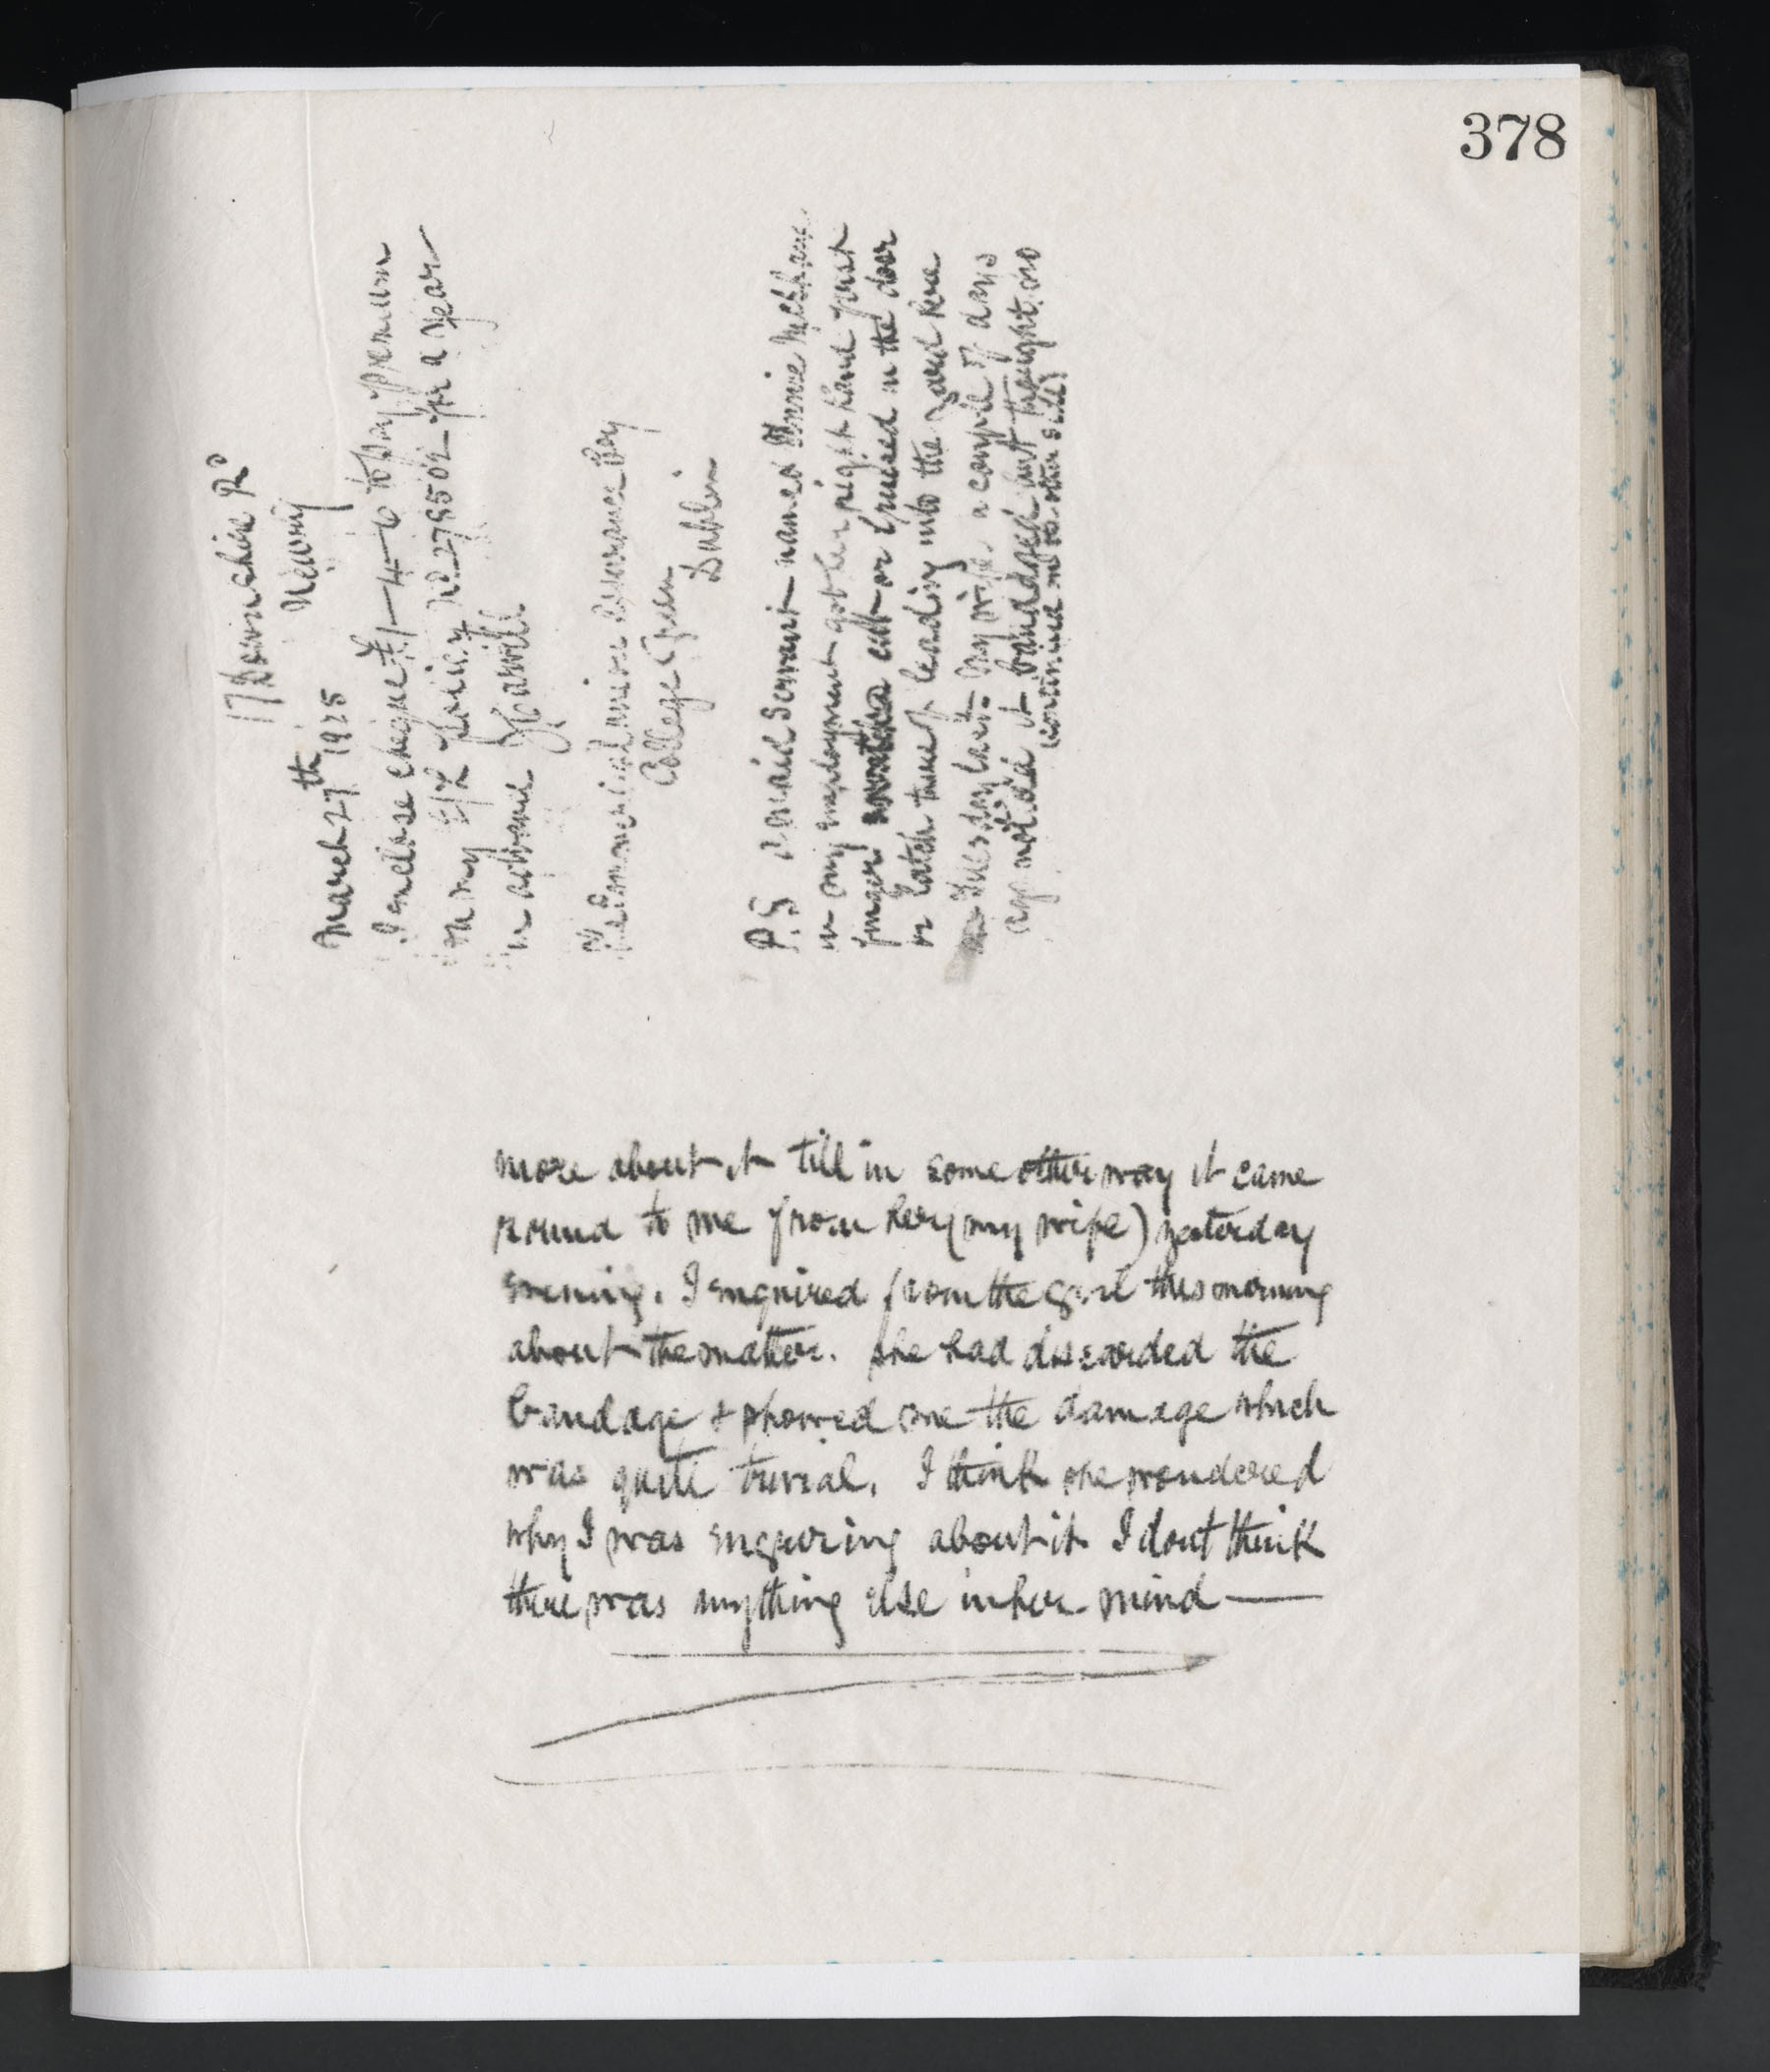 378
17 Downshire Rd
Newry
March 27th 1925
I enclose cheque £1-4-6 to pay premium
on my E/L Policy No 278502 for a year
in advance
The Commercial Union Assurance Coy
College Green
Dublin
P.S. A maid Servant named Minnie
in my employment got her right hand first
finger cut or bruised in the door
or latch thereof leading into the yard here
on Tuesday last. My wife a couple of days
ago noticed it bandaged but thought no
(continued on the other side)
more about it till in some other way it came
round to me from her (my wife) yesterday
evening. I enquired from the girl this morning
about the matter. She had discarded the
bandage & showed me the damage which
was quite trivial. I think she wondered
why I was enquiring about it I dont think
there was anything else in her mind —